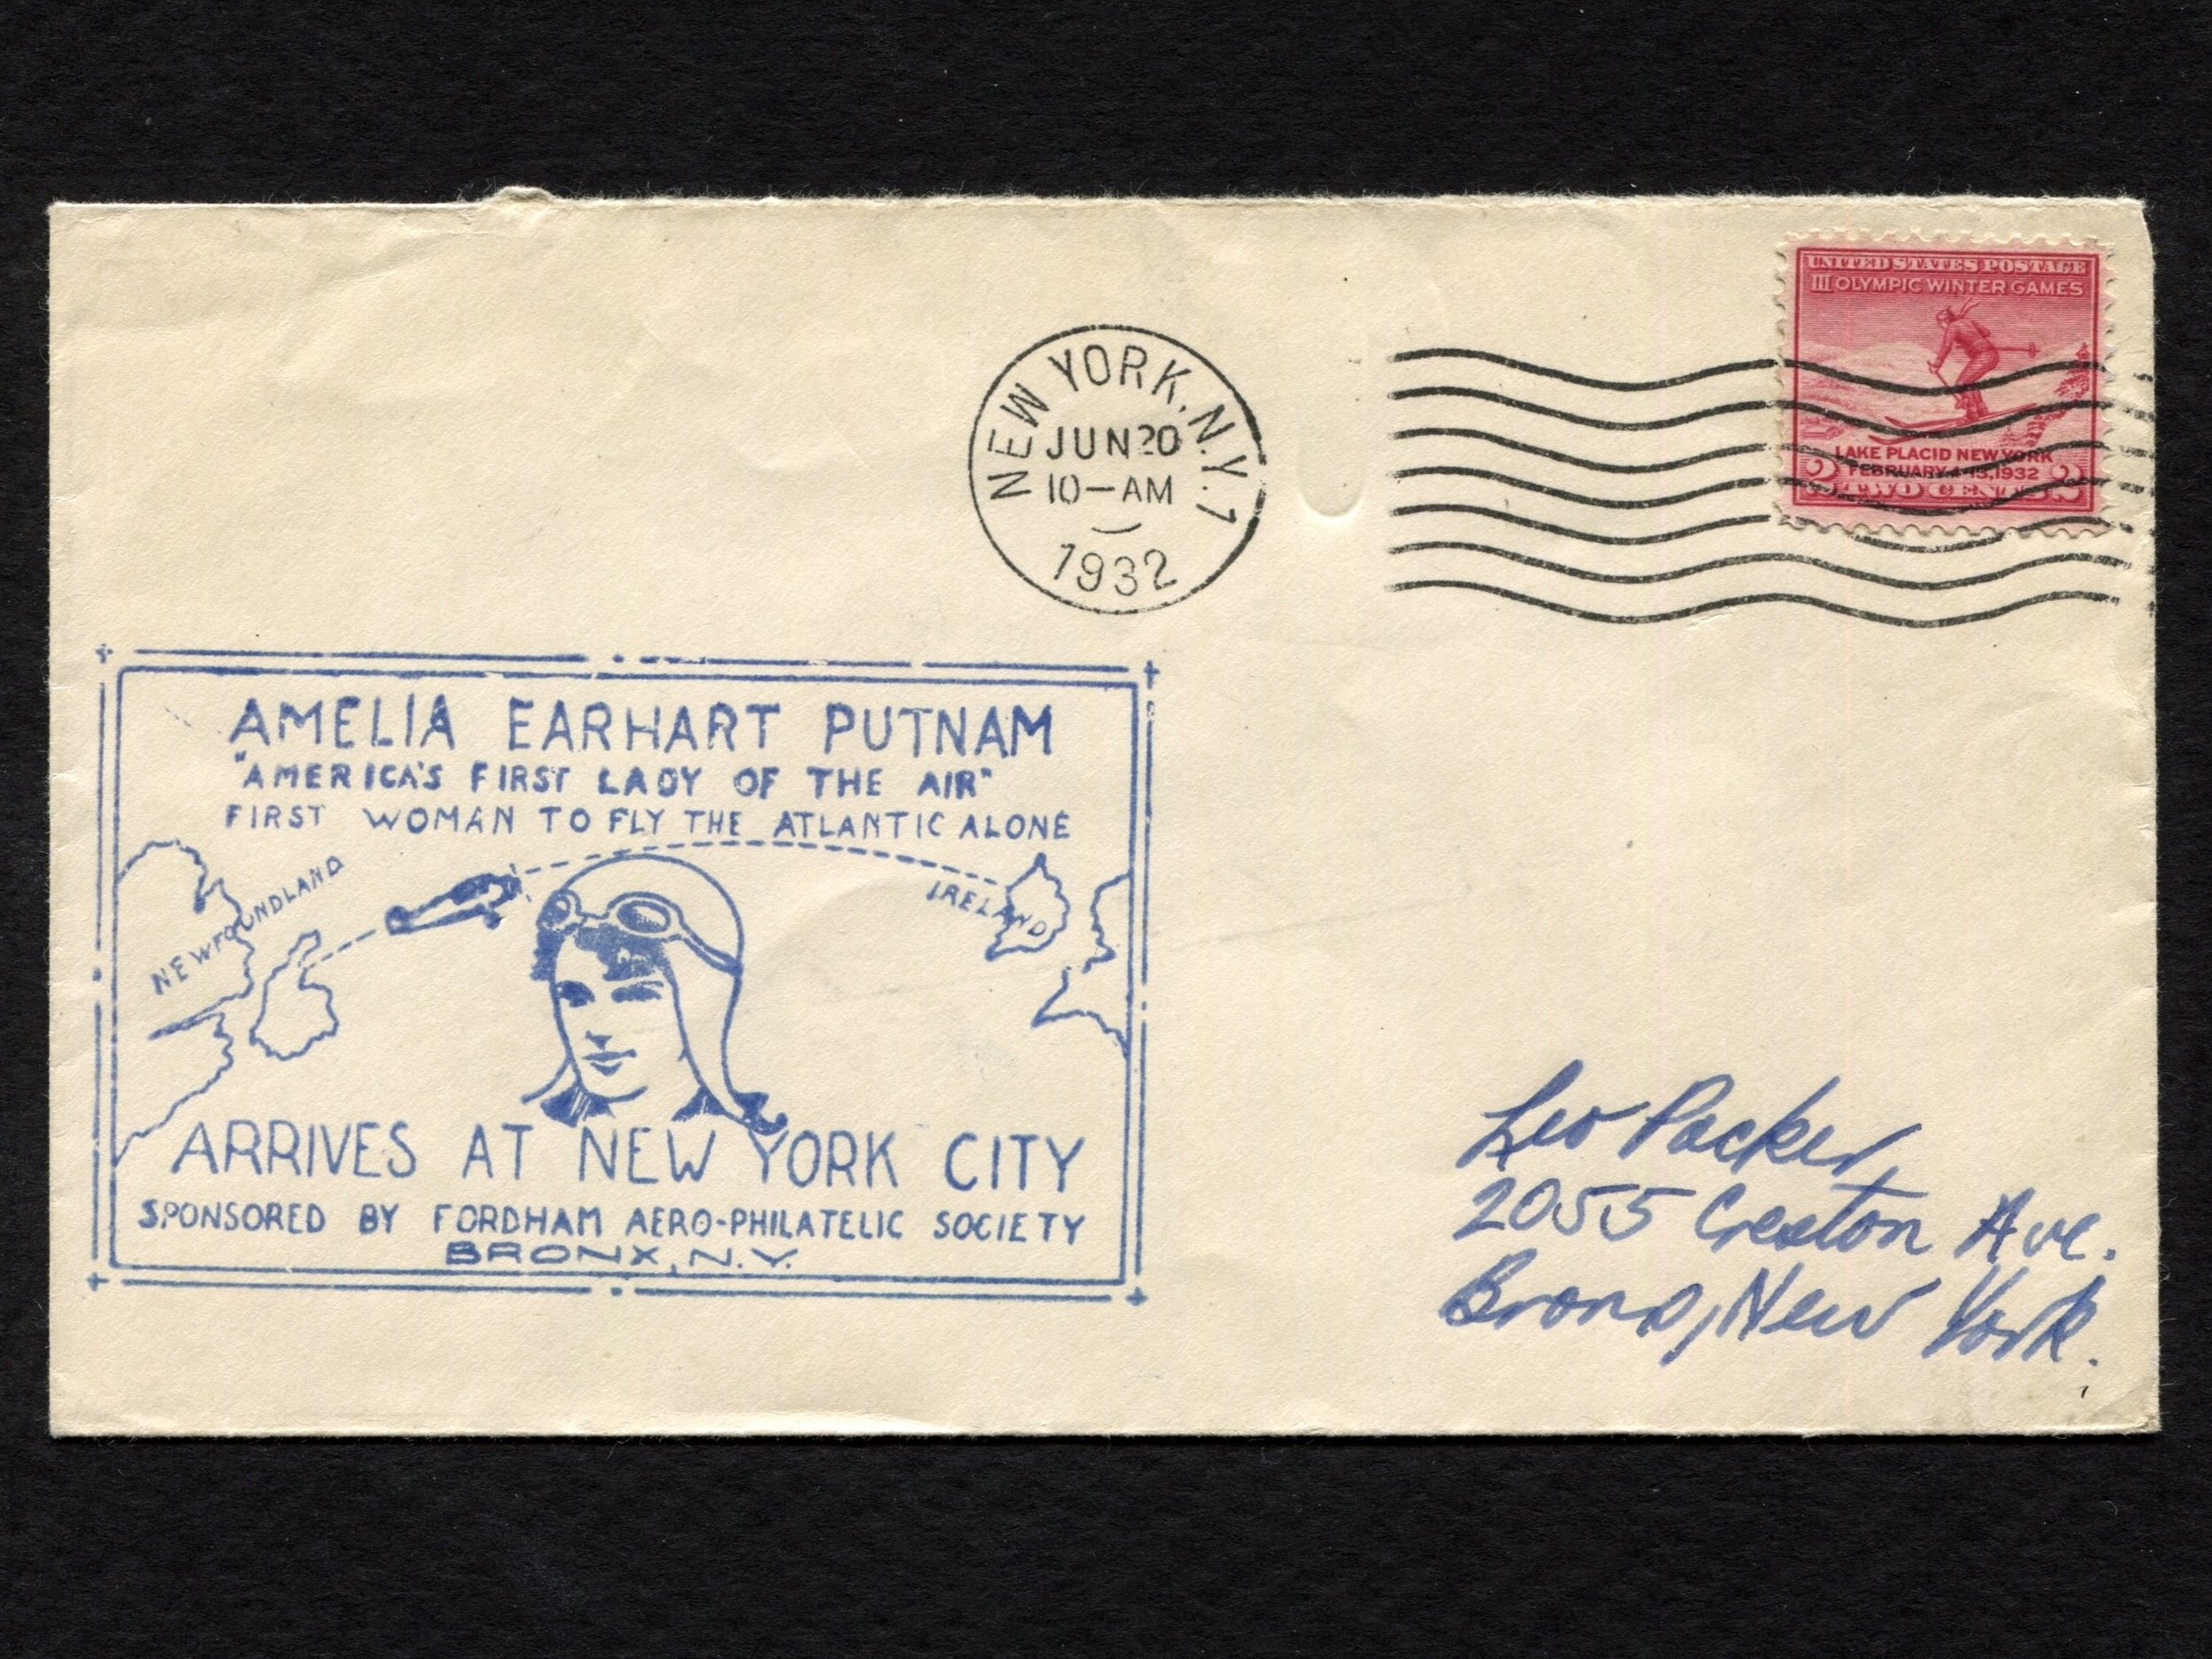 UNITED STATES POSTAGE
III OLYMPIC WINTER GAMES
LAKE PLACID NEW YORK
FEBRUARY 4-13, 1932
2 TWO CENTS 2
NEW YORK, N.Y. 1
JUN 20
10-AM
1932
AMELIA EARHART PUTNAM
"AMERICA'S FIRST LADY OF THE AIR"
FIRST WOMAN TO FLY THE ATLANTIC ALONE
NEWFOUNDLAND
IRELAND
ARRIVES AT NEW YORK CITY
SPONSORED BY FORDHAM AERO-PHILATELIC SOCIETY
BRONX, N.Y.
Leo Packer,
2055 Creston Ave.
Bronx, New York.